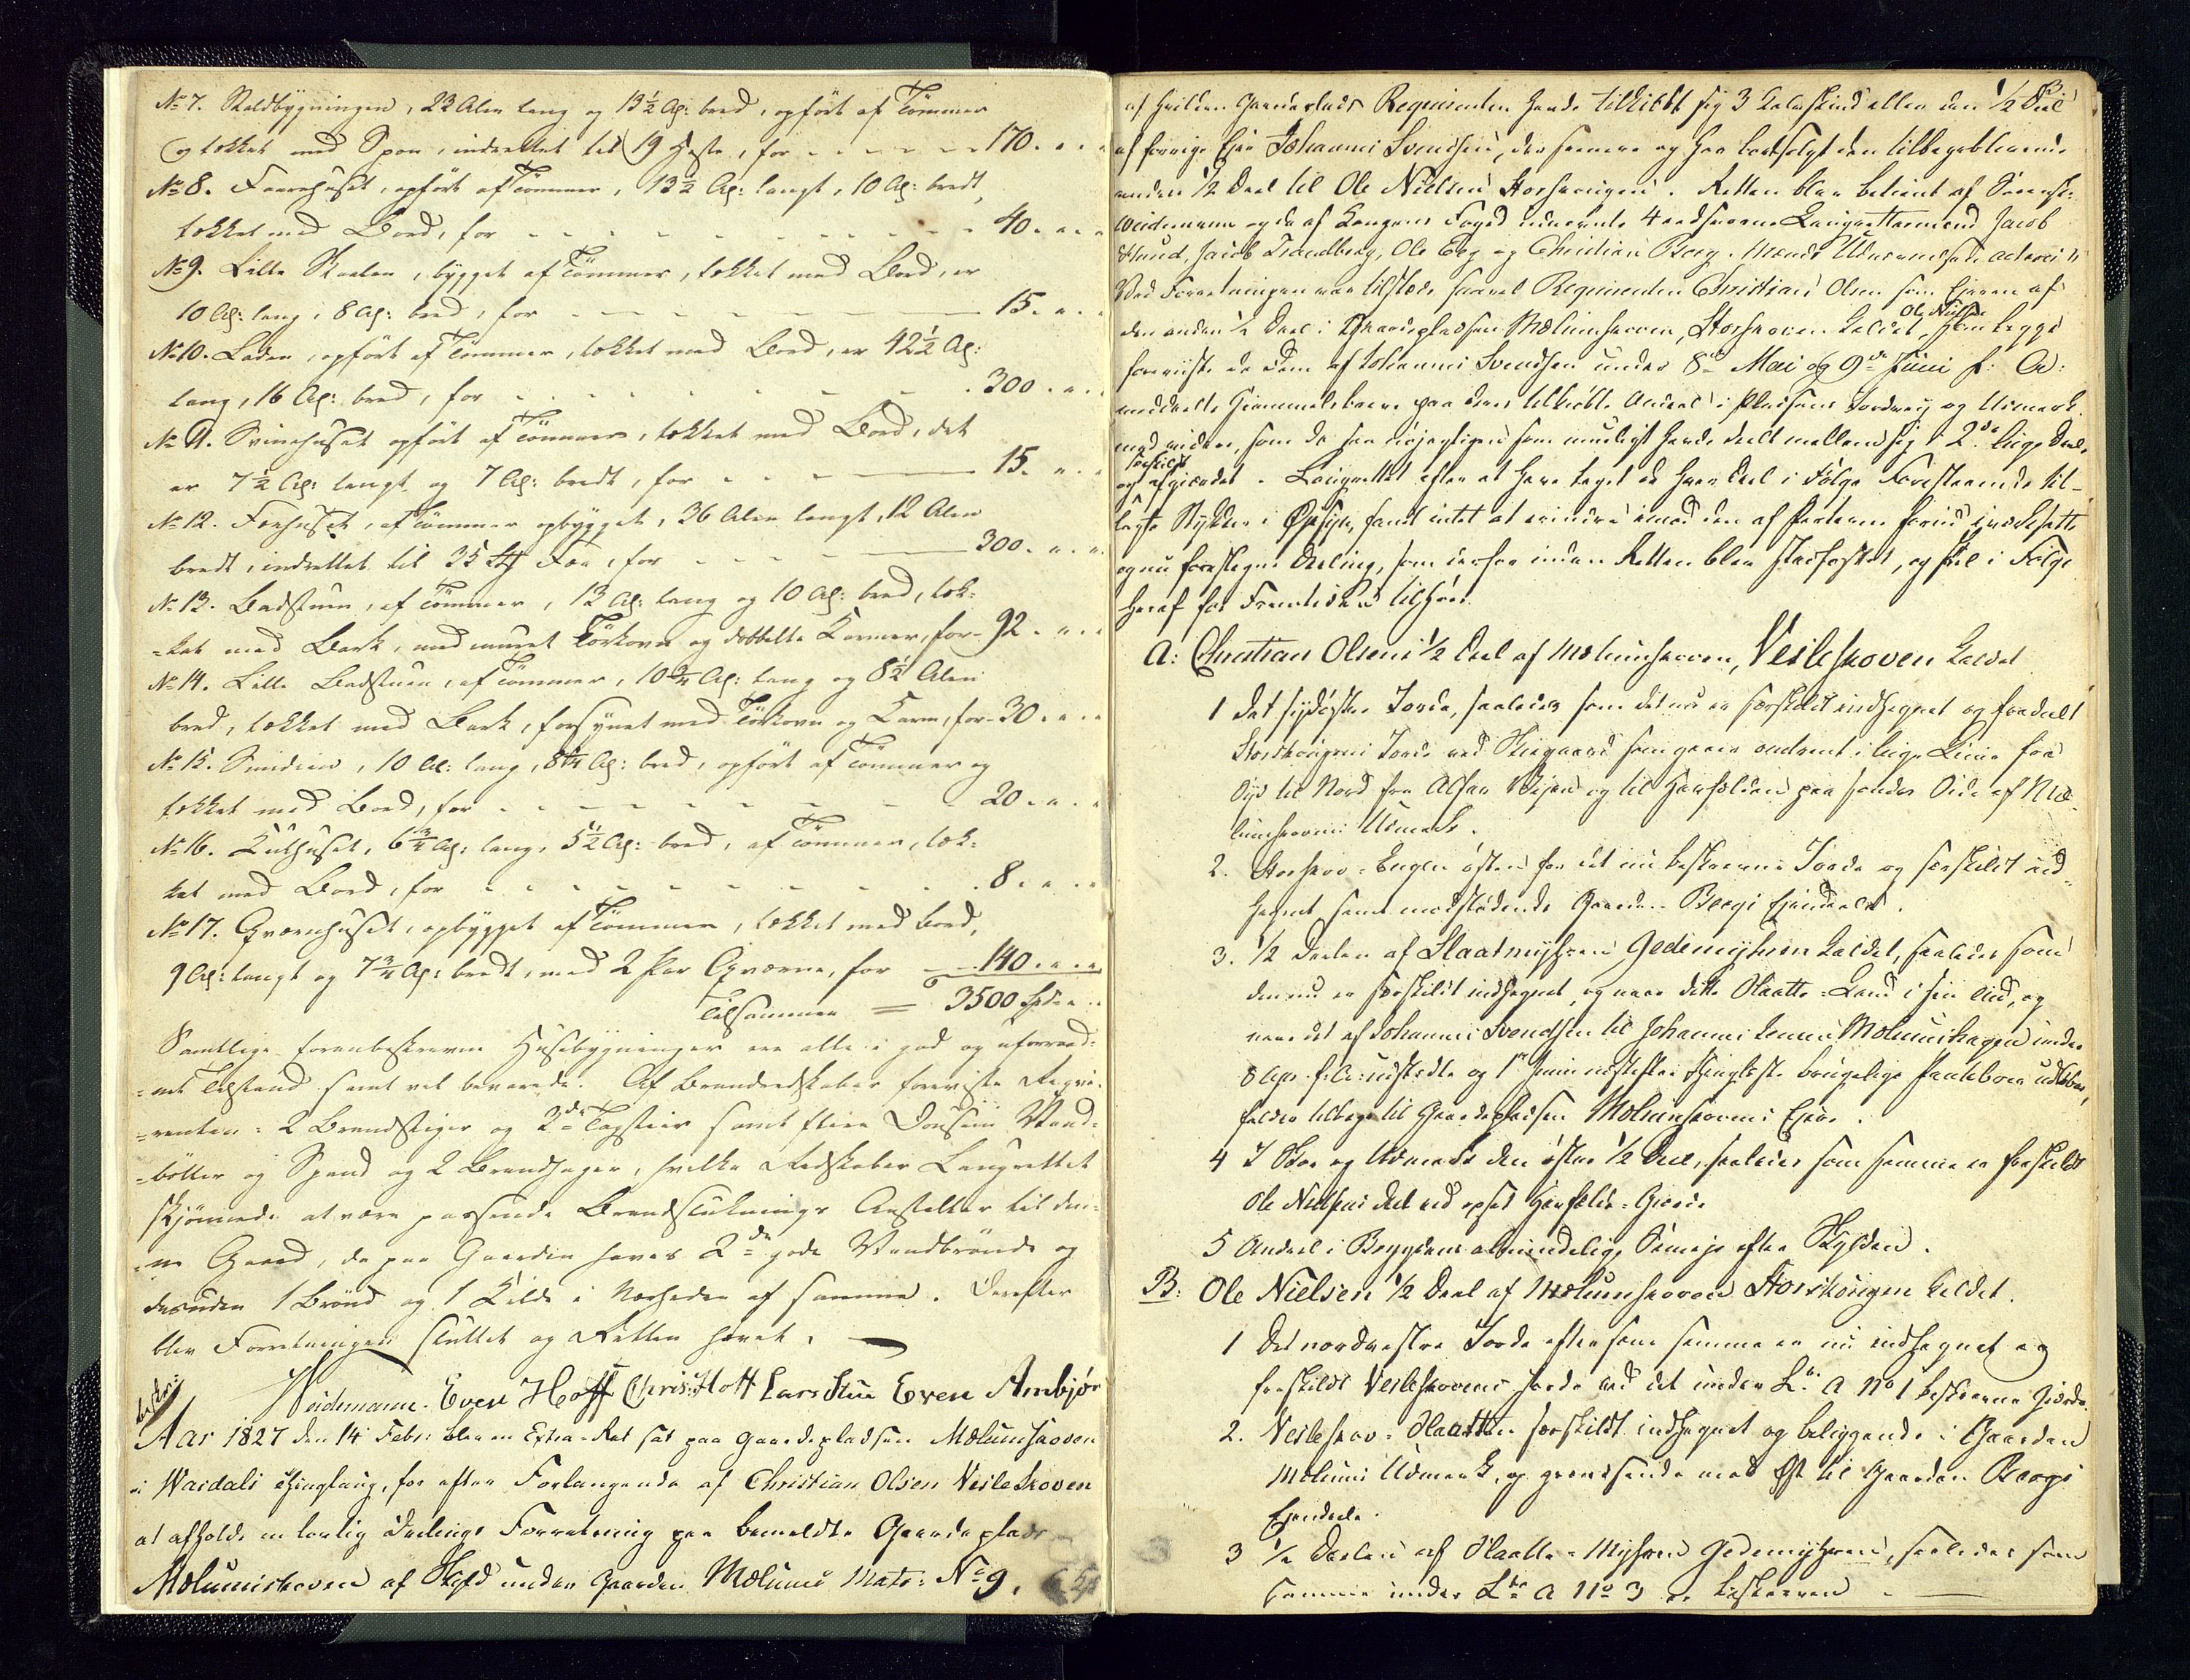 No 7. Staldbygningen, 23 Alen lang og 13½ Al: bred, opført af Tömmer
og tækket med Spon, indrettet til 19 Heste, for - - - - 170. " "
No 8. Faarehuset, opført af Tömmer, 13½ Al: langt, 10 Al: bredt,
tækket med Bord, for - - - - - - - - 40. " "
No 9. Lille Staalen, bygget af Tömmer, tækket med Bord, er
10 Al: lang, 8 Al: bred, for - - - - - - 15. " "
No 10. Laden, opført af Tömmer, tækket med Bord, er 42½ Al:
lang, 16 Al: bred, for - - - - - - 300. " "
No 11. Svinehuset opført af Tömmer, tækket med Bord, det
er 7½ Al: langt og 7 Al: bredt, for - - - 15. " "
No 12. Fæhuset, af Tömmer opbygget, 36 Alen langt, 12 Alen
bredt, indrettet til 35 St Fæe, for - - - 300. " "
No 13. Badstuen, af Tömmer, 13 Al: lang og 10 Al: bred, tæk-
-ket med Bark, med muret Törkovn og dobbelte Karmer, for - 92. " "
No 14. Lille Badstuen, af Tömmer, 10¾ Al: lang og 8½ Alen
bred, tækket med Bark, forsynet med Törkovn og Karm, for - 30. " "
No 15. Smidien, 10 Al: lang, 8¼ Al: bred, opført af Tömmer og
tækket med Bord, for - - - - - - 20. " "
No 16. Kulhuset, 6¾ Al: lang, 5½ Al: bred, af Tömmer, tæk-
ket med Bord, for - - - - - - 8. " "
No 17. Qværnhuset, opbygget af Tömmer, tækket med Bord,
9 Al: langt og 7¾ Al: bredt, med 2 Par Qværne, for - - 140. " "
Tilsammen = 3500 Spd: "
Samtlige foranbeskrevne Husebygninger ere alle i god og uforraad-
-net Tilstand samt vel bevarede. Af Brandredskaber foreviste Reqvi-
-renten: 2 Brandstiger og 2de Tagstier samt flere Dousin Vand-
-bötter og Spand og 2 Brandhager, hvilke Redskaber Laugrettet
skjønnede at være passende Brandsluknings Anstalter til den-
-ne Gaard, da paa Gaarden haves 2de gode Vandbrönde og
desuden 1 Brönd og 1 Kilde i Nærheden af samme. Derefter
blev Forretningen sluttet og Retten hævet.
Weidemann. Even Hoff Chris: Hoff Lars Stue Even Ambjör
beskr:
Aar 1827 den 14 Febr: blev en Extra-Ret sat paa Gaardepladsen Mælumskoven
i Værdals Thinglaug, for efter Forlangende af Christian Olsen Vesleskoven
at afholde en lovlig Deelings Forretning paa bemeldte Gaardeplads
Mælumskoven af Skyld under Gaarden Mælums Matr: No 9.
3
af hvilken Gaardeplads Reqvirenten havde tilkiöbt sig 3 Kalveskind eller den ½ Deel
af forrige Ejer Johannes Svendsen, der senere og har bortsolgt den tilbageblevende
anden ½ Deel til Ole Nielsen Storskougen. Retten blev betient af Sorensk:
Weidemann og de af Kongens Foged udnævnte 4 edsvorne Laugrettesmænd Jacob
Stund, Jacob Trondberg, Ole Berg og Christian Berg.
Ved Forretningen var tilstæde saavel Reqvirenten Christian Olsen som Ejeren af
den anden ½ Deel i Gaardepladsen Mælumskoven, Storskoven kaldet, Ole Nielsen
foreviiste de dem af Johannes Svendsen under 8de Mai og 9de Juni f: A:
meddeelte Hjemmelsbreve paa deres tilkiöbte Andeel i Pladsens Jordvej og Udmark
med videre, som de saa nöjagtigen som muligt havde deelt mellem sig i 2de lige Dele,
og særskilt afgiærdet. Laugrettet efter at have taget de hver Deel i Følge Forestaaende til-
lagte Stykker i Öjesyn, fandt intet at erindre imod den af Parterne forud iværksatte
og nu foretagne Deeling, som derfor inden Retten blev stadfæstet, og skal i Følge
heraf for Fremtiden tilhöre.
A: Christian Olsens ½ Deel af Mælumskoven, Vesleskoven kaldet
1 Det sydöstre Jorde, saaledes som det nu er særskilt indhegnet og fradeelt
Storskougens Jorde ved Skiegaard som gaaer omtrent i lige Linie fra
Syd til Nord fra Alfar Vejen og til Havnelden paa sondre Side af Mæ-
lumskovens Udmark.
2. Storskov-Engen östen for det nu beskrevne Jorde og særskilt ind-
hegnet samt modstödende Gaarden Bergs Ejendeele.
3. ½ Deelen af Slaatmyhren Gedemyhren kaldet, saaledes som
den nu er særskilt indhegnet, og naar dette Slaatte-Land i sin Tid, og
naar det af Johannes Svendsen til Johannes Mælumshagen under
8 Apr. f: A: udstedte og 1ste Juni næstefter thinglæste brugelige Pantebrev udlöber,
falder tilbage til Gaardepladsen Mælumskovens Ejere.
4 I Skov og Udmark den östre ½ Deel, saaledes som samme er fraskildt
Ole Nielsens Deel ved opsat Havnelds-Gierde
5 Andeel i Byggdens almindelige Sameje efter Skylden.
B: Ole Nielsen ½ Deel af Mælumskoven Storskougen kaldet.
1 Det nordvestre Jorde eftersom samme er nu indhegnet og
fraskildt Vesleskovens Jorde ved det under Lr: A No 1 beskrevne Gierde.
2. Vesleskov-Slaatten særskildt indhegnet og beliggende i Gaarden
Mælums Udmark, og grændsende mod Öst til Gaarden Bergs
Ejendeele.
3 ½ Deelen af Slaatte-Myhren Gedemyhren, saaledes som
samme under Lr: A No 3 er beskreven.